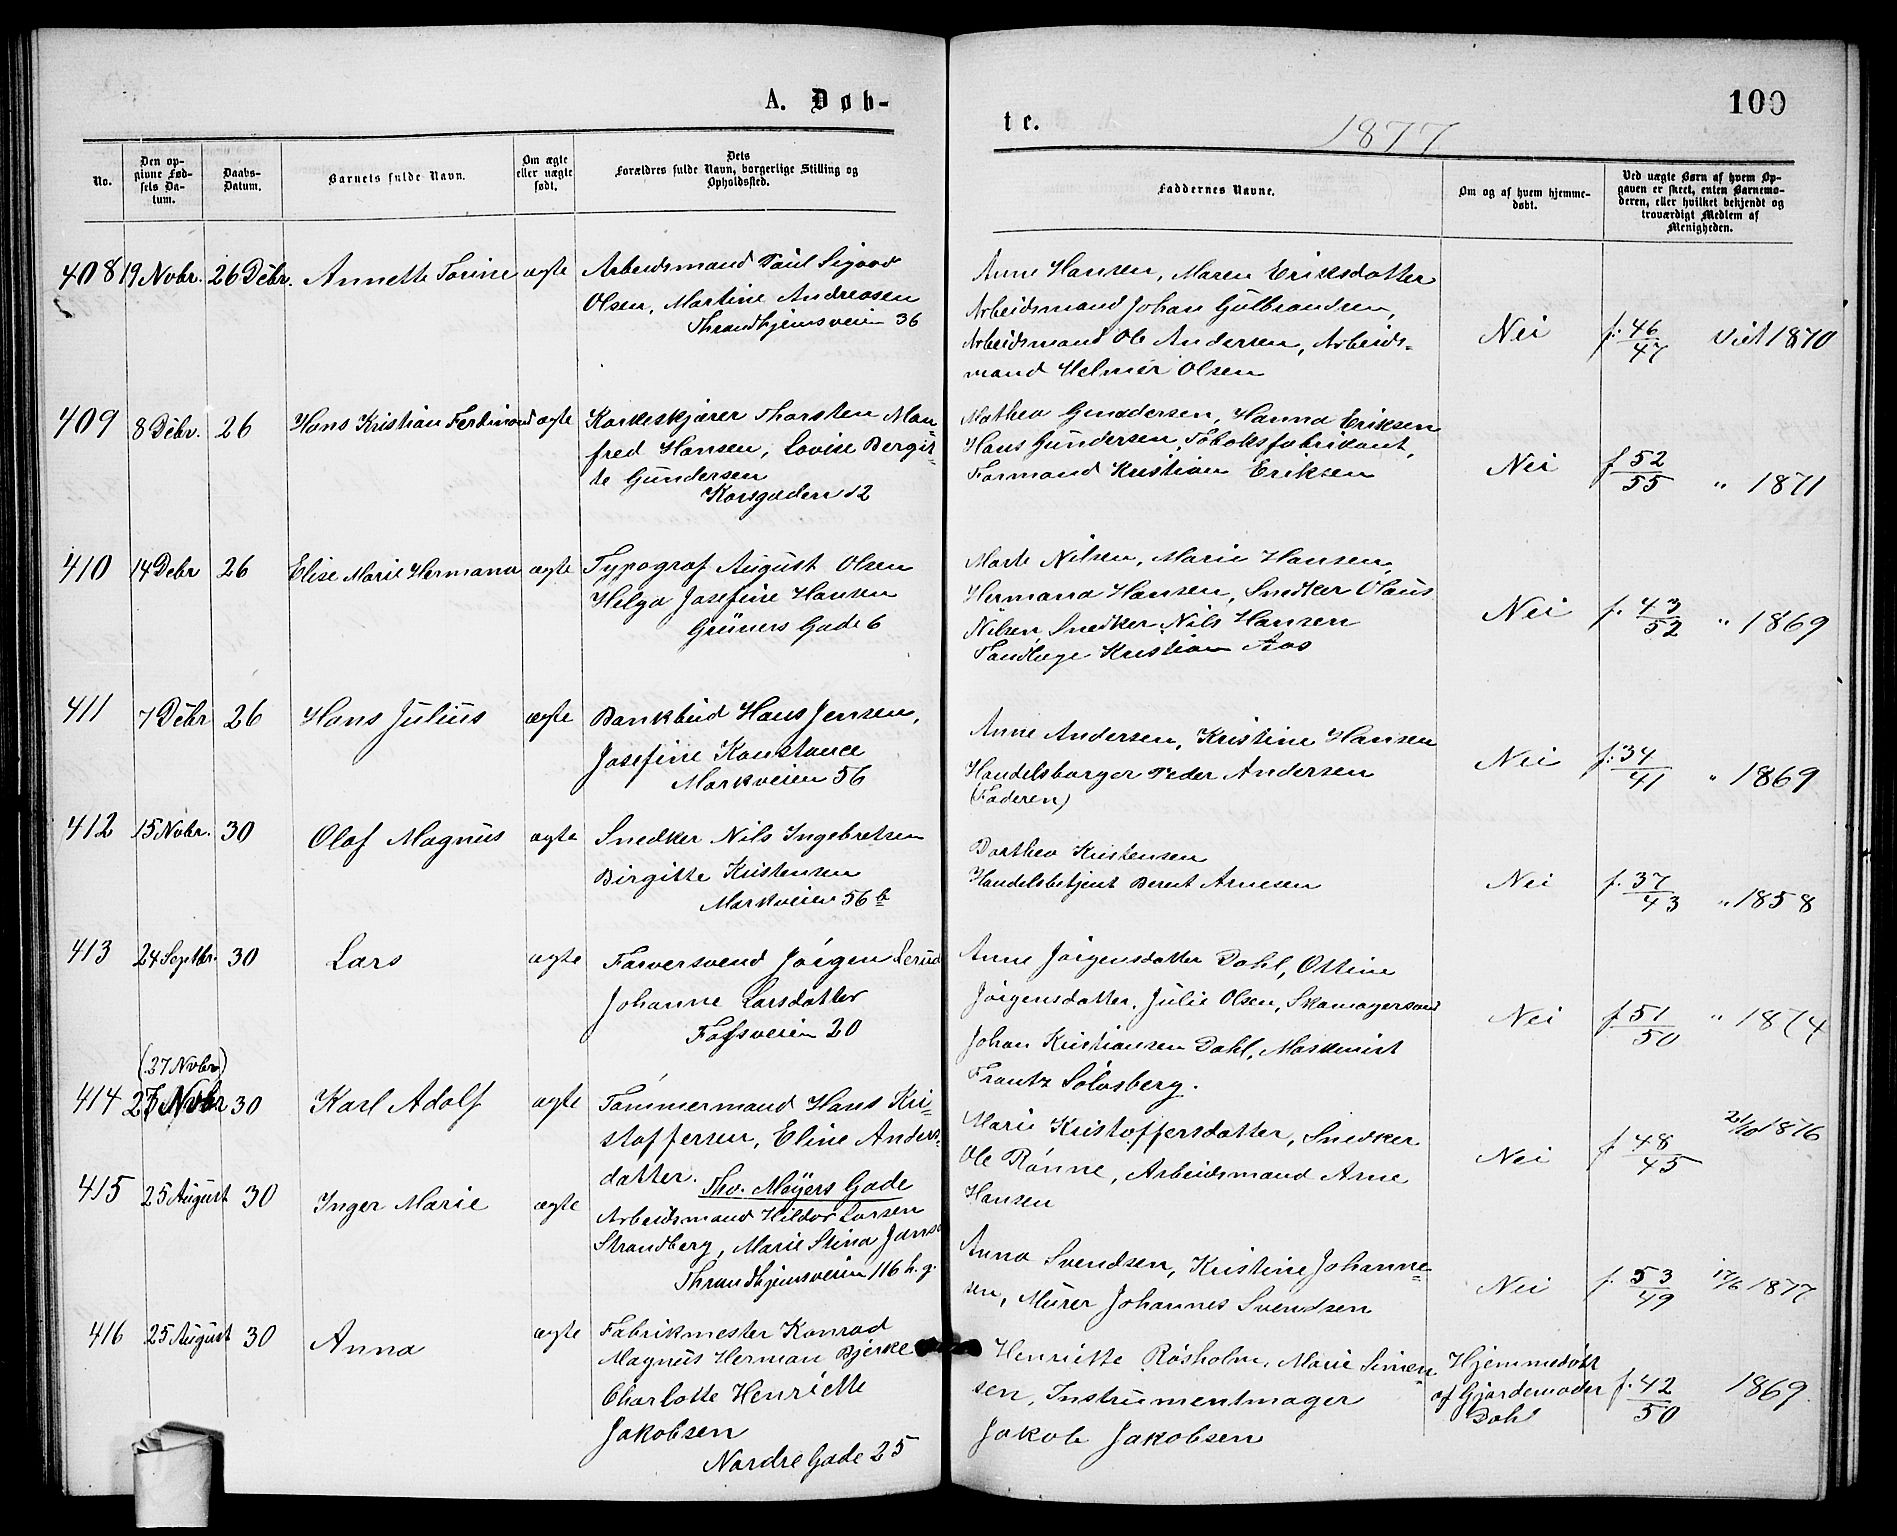 A. Døb-
No.
Den op-
givne Fød-
sels Da-
tum.
Daabs-
Datum.
Barnets fulde Navn.
Om ægte
eller uægte
født.
Dets
Forældres fulde Navn, borgerlige Stilling og
Opholdssted.
408 19 Novbr. 26 Debr. Annette Torine ægte Arbeidsmand Paul Sigvard
Olsen, Martine Andreasen
Throndhjemsveien 36
409 8 Debr. 26 Hans Kristian Ferdinand ægte Korkeskjærer Thorsten Man-
fred Hansen, Lovise Bergit-
te Gundersen
Korsgaden 12
410 14 Debr 26 Elise Marie Hermana ægte Typograf August Olsen
Helga Josefine Hansen
Grüners Gade 6
411 7 Debr 26 Hans Julius ægte Bankbud Hans Jensen,
Josefine Konstance
Markveien 56
412 15 Nobr. 30 Olaf Magnus ægte Snedker Nils Ingebretsen
Birgitte Kristensen
Markveien 56 b
413 24 Septbr. 30 Lars ægte Farversvend Jörgen Lerud
Johanne Larsdatter
Fossveien 20
(27 Nvbr)
414 27 Nvbr 30 Karl Adolf ægte Tömmermand Hans Kri-
stoffersen, Eline Anders-
datter. Thv. Meyers Gade
415 25 August 30 Inger Marie ægte Arbeidsmand Hildor Larsen
Strandberg, Marie Stina Jans
Throndhjemsveien 116 h. g.
416 25 August 30 Anna ægte Fabrikmester Konrad
Magnus Herman Bjerke
Charlotte Henriette
Jakobsen
Nordre Gade 25
te.
1877
100
Faddernes Navne.
Om og af hvem hjemme-
døbt.
Ved uægte Børn af hvem Op-
gaven er skeet, enten Barnemo-
deren, eller hvilket bekjendt og
troværdigt Medlem af
Menigheden.
Anne Hansen, Maren Eriksdatter
Arbeidsmand Johan Gulbrandsen,
Arbeidsmand Ole Andersen, Arbeids-
mand Helmer Olsen
Nei f. 46/47 Viet 1870
Mathea Gundersen, Hanna Eriksen
Hans Gundersen, Tobaksfabrikant,
Formand Kristian Eriksen
Nei f 52/55 " 1871
Marte Nilsen, Marie Hansen,
Hermana Hansen, Snedker Olaus
Nilsen, Snedker Nils Hansen
Tandlæge Kristian Aas
Nei f. 43/52 " 1869
Anne Andersen, Kristine Hansen
Handelsborger Peder Andersen
(Faderen)
Nei f. 34/41 " 1869
Dorthea Kristensen
Handelsbetjent Bernt Arnesen
Nei f. 37/43 " 1858
Anne Jörgensdatter Dahl, Ottine
Jörgensdatter. Julie Olsen, Skomagersvend
Johan Kristiansen Dahl, Maskinist
Frantz Solosberg.
Nei f 51/50 " 1874
Marie Kristoffersdatter, Snedker
Ole Rönne, Arbeidsmand Arne
Hansen
Nei f 48/45 21/10 1876
Anna Svendsen, Kristine Johanne-
sen, Murer Johannes Svendsen
Nei f. 53/49 17/6 1877
Henriette Rösholm, Marie Simen-
sen, Instrumentmager
Jakob Jakobsen
Hjemmedöbt
af Gjordemoder
Dahl
f. 42/50 1869.